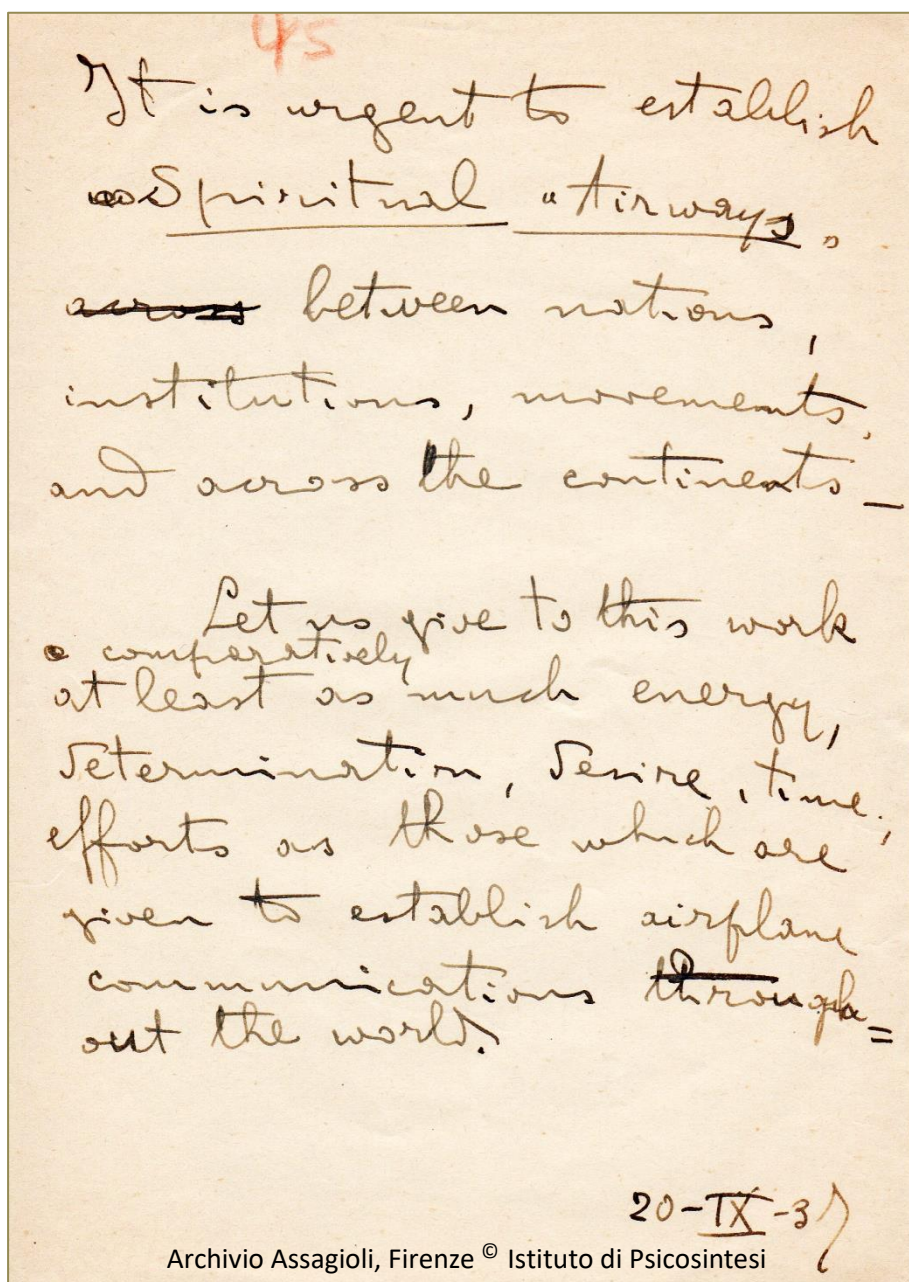 45
It is urgent to establish
Spiritual "Airways"
across between nations,
institutions, movements,
and across the continents –
Let us give to this work
comparatively
at least as much energy,
determination, desire, time,
efforts as those which are
given to establish airplane
communications through=
out the world.
20-IX-37
Archivio Assagioli, Firenze © Istituto di Psicosintesi